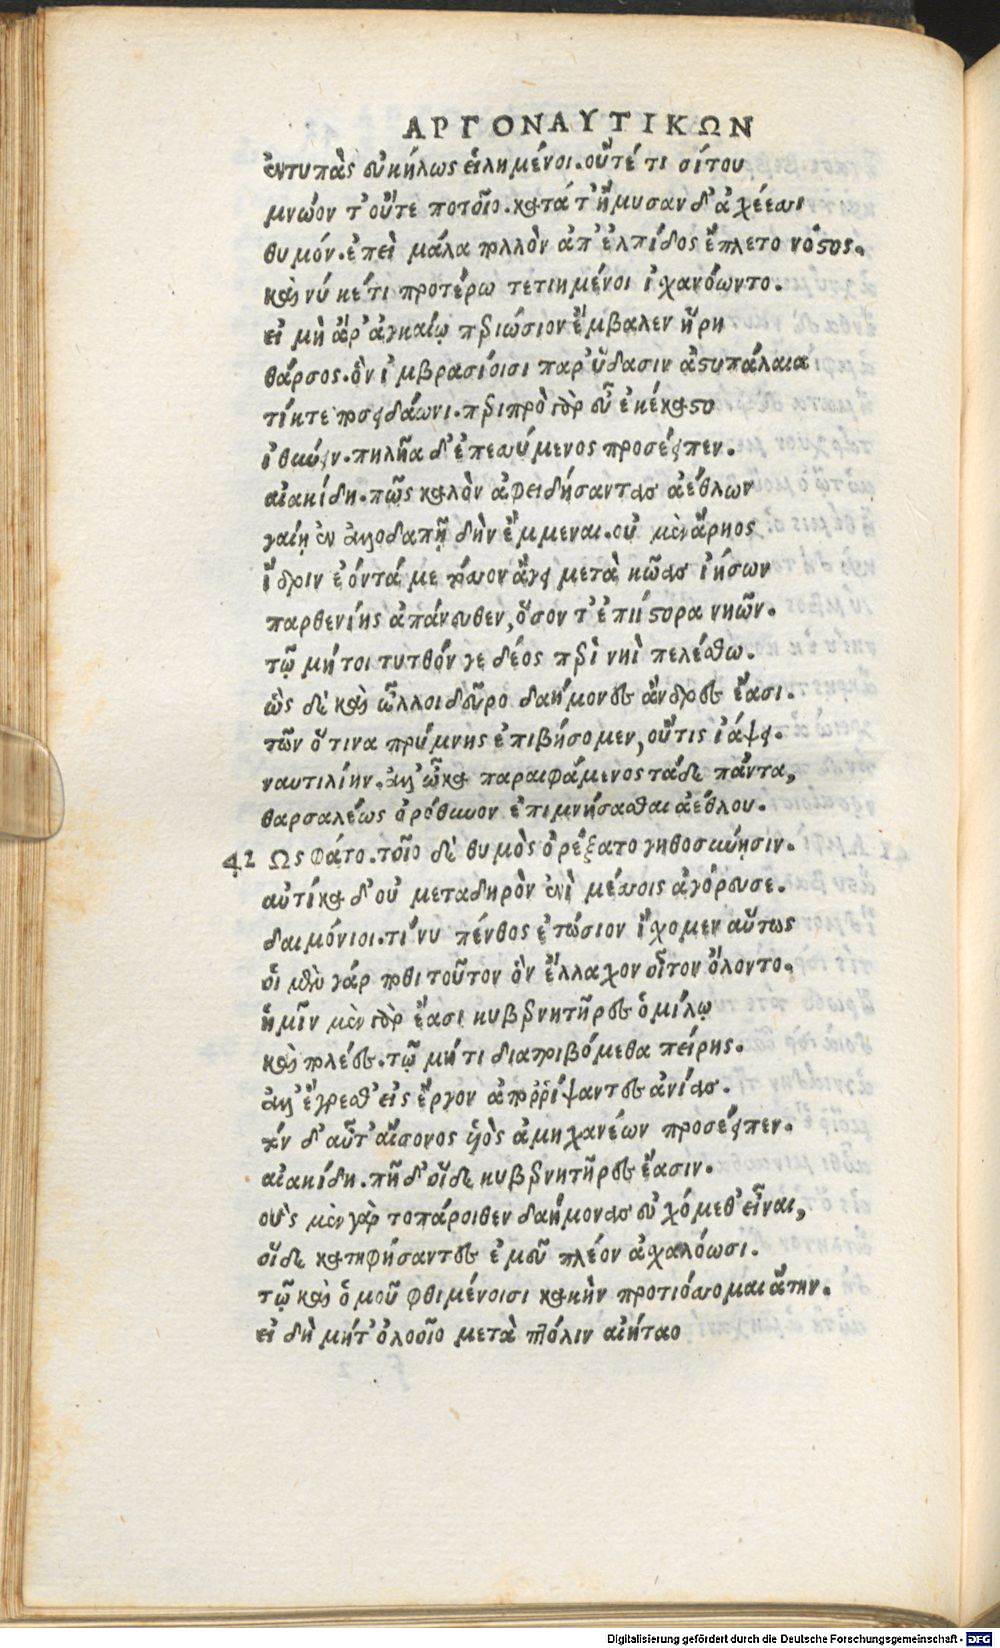 ΑΡΓΟΝΑΥΤΙΚΩΝ
ἐντυπὰς εὐκήλως εἰλημένοι. οὔτέ τι σίτου
μνώον τ' οὔτε ποτοῖο. κατά τ' ἤμυσαν δ' ἀχέεσσι
θυμόν. ἐπεὶ μάλα πολλὸν ἀπ' ἐλπίδος ἔπλετο νόστος.
καὶ νύ κέ τι προτέρω τετιημένοι ἰχανόωντο.
εἰ μὴ ἄρ' ἀγκαίῳ περιώσιον ἔμβαλεν ἥρη
θάρσος. ὃν ἰμβρασίοισι παρ' ὕδασιν ἀστυπάλαια
τίκτε ποσειδάωνι. περιπρὸ γὰρ εὖ ἐκέκαστο
ἰθύειν. πηλῆα δ' ἐπεσσύμενος προσέειπεν.
αἰακίδη. πῶς καλὸν ἀφειδήσαντας ἀέθλων
γαίῃ ἐν ἀλλοδαπῇ δὴν ἔμμεναι. οὐ μὲν ἄρηος
ἴδριν ἐόντά με τόσσον ἄγει μετὰ κῶας ἰήσων
παρθενίης ἀπάνευθεν, ὅσον τ' ἐπιίστορα νηῶν.
τῷ μή τοι τυτθόν γε δέος περὶ νηὶ πελέσθω.
ὣς δὲ καὶ ὦλλοι δεῦρο δαήμονες ἄνδρες ἔασι.
τῶν ὅτινα πρύμνης ἐπιβήσομεν, οὔτις ἰάψει.
ναυτιλίην. ἀλλ' ὦκα παραιφάμενος τάδε πάντα,
θαρσαλέως ὀρόθυνον ἐπιμνήσασθαι ἀέθλου.
42 Ως φάτο. τοῖο δὲ θυμὸς ὀρέξατο γηθοσύνῃσιν.
αὐτίκα δ' οὐ μεταδηρὸν ἐνὶ μέσσοις ἀγόρευσε.
δαιμόνιοι. τί νυ πένθος ἐτώσιον ἴχομεν αὔτως
οἱ μὲν γάρ ποθι τοῦτον ὃν ἔλλαχον οἶτον ὄλοντο.
ἡμῖν μὲν γὰρ ἔασι κυβερνητῆρες ὁμίλῳ
καὶ πλέες. τῷ μή τι διατριβόμεθα πείρης.
ἀλλ' ἔγρεσθ' εἰς ἔργον ἀπορρίψαντες ἀνίας.
τὸν δ' αὖτ' αἴσονος υἱὸς ἀμηχανέων προσέειπεν.
αἰακίδη. πῆ δ' οἵδε κυβερνητῆρες ἔασιν.
οὓς μὲν γὰρ τοπάροιθεν δαήμονας εὐχόμεθ' εἶναι,
οἵδε κατηφήσαντες ἐμεῦ πλέον ἀχαλόωσι.
τῷ καὶ ὁμοῦ φθιμένοισι κακὴν προτιόσσομαι ἄτην.
εἰ δὴ μήτ' ὀλοοῖο μετὰ πτόλιν αἰήταο